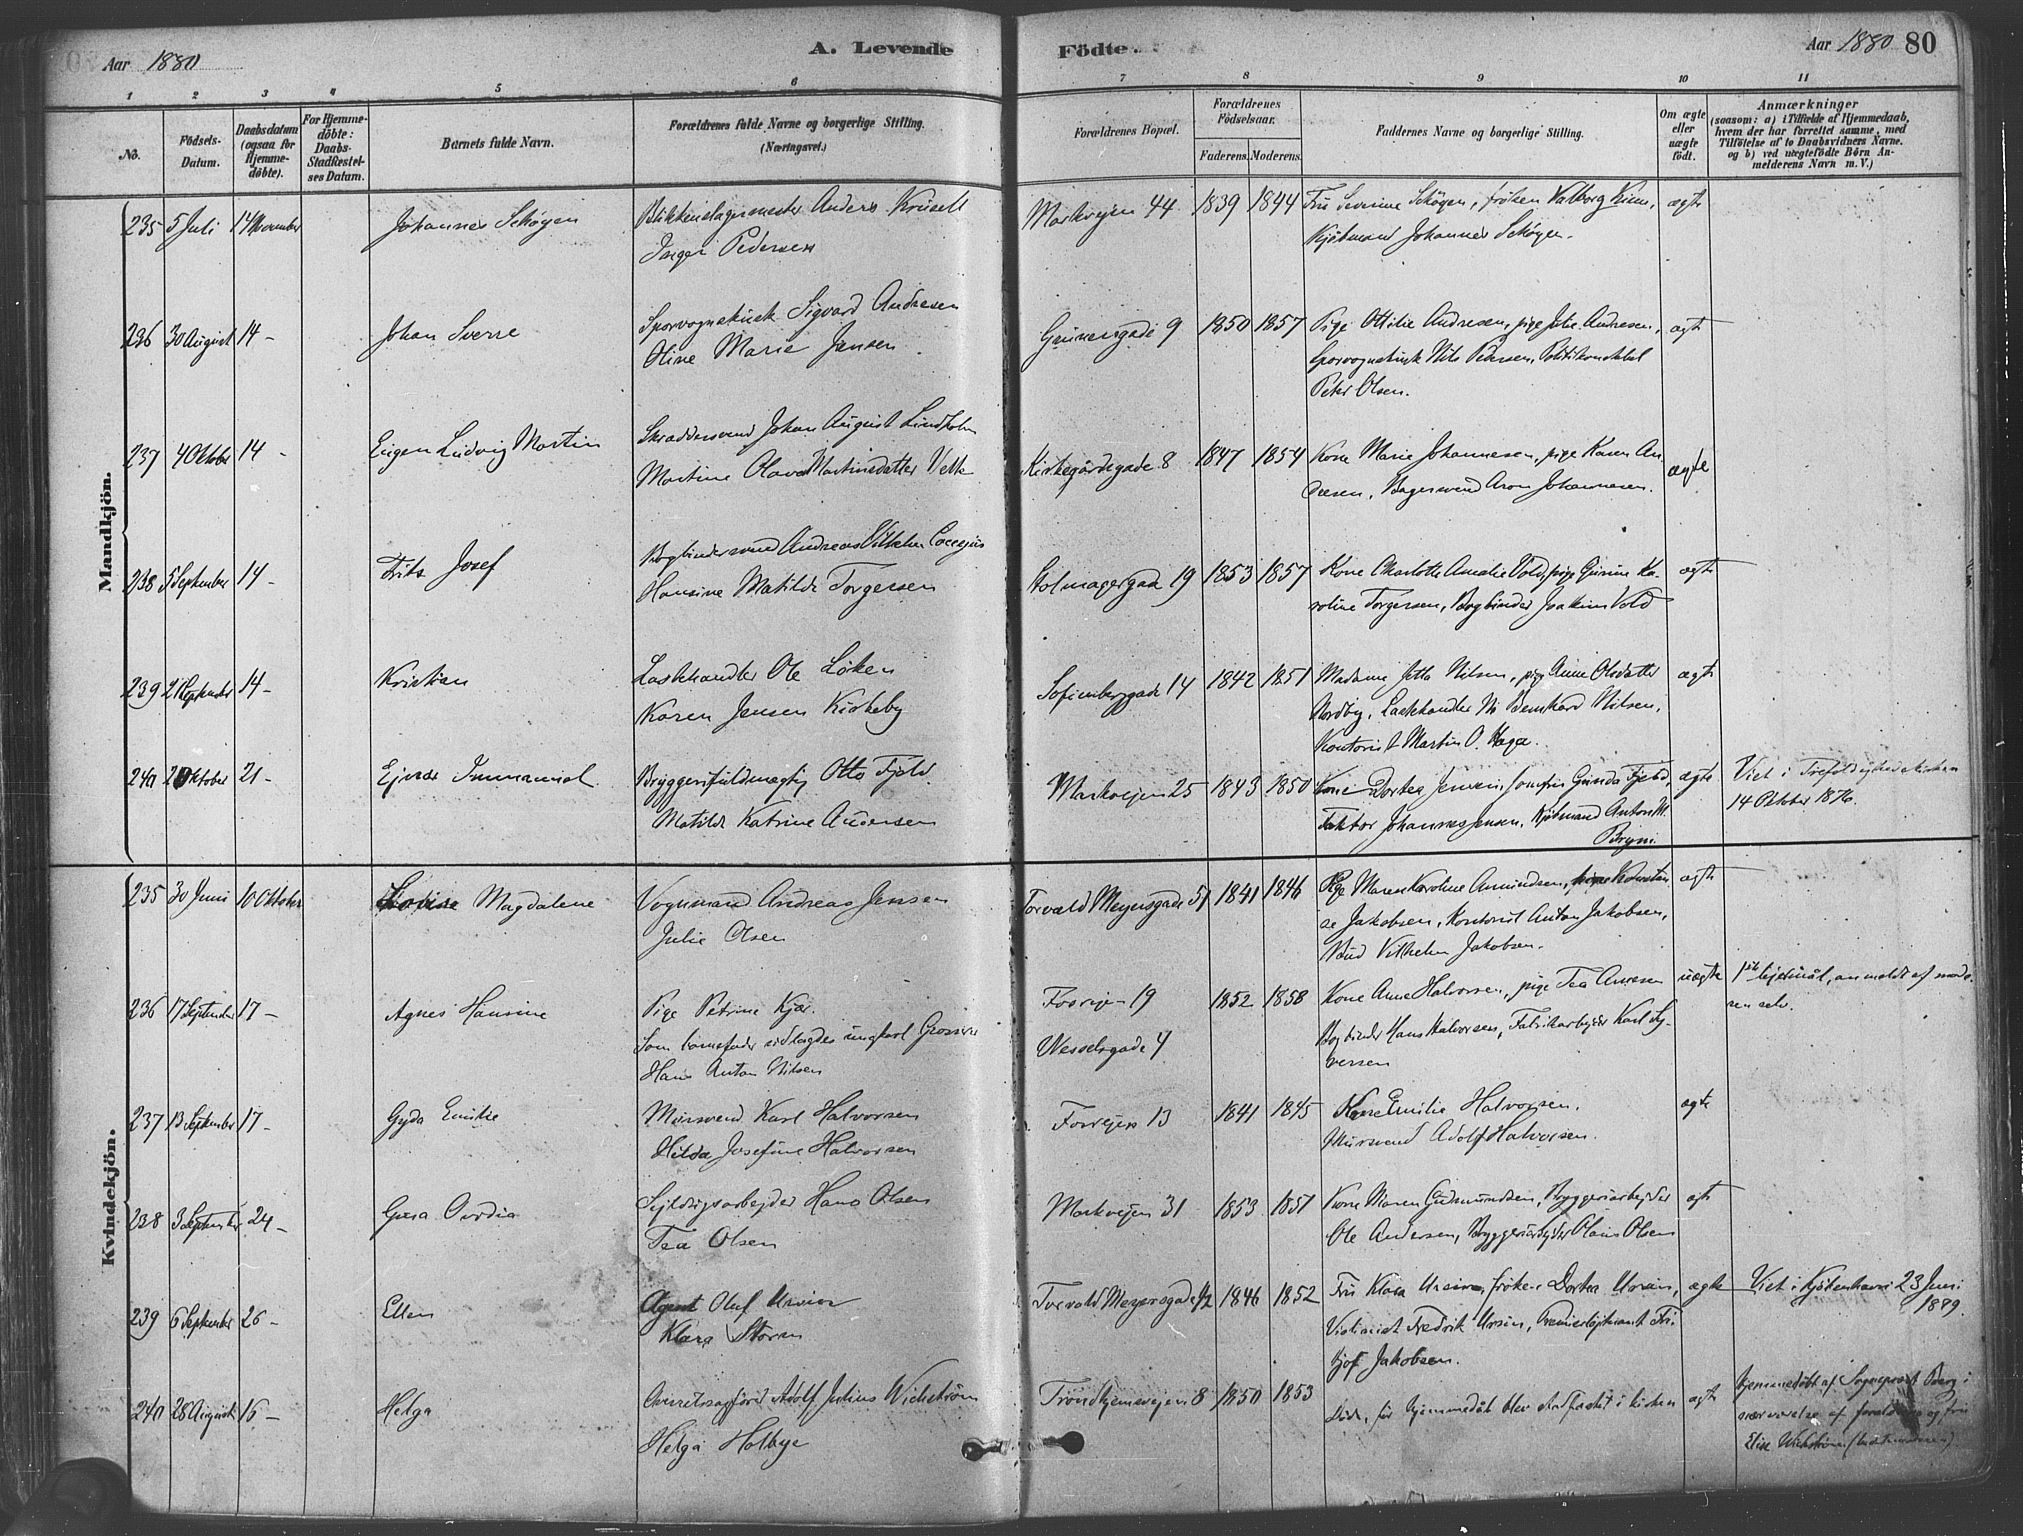 Aar 1880
A. Levende Födte.
Aar 1880 80
1 2 3 4 5 6 7 8 9 10 11
No.
Födsels-Datum.
Daabsdatum (ogsaa for Hjemmedöbte).
For Hjemmedöbte: Daabs-Stadfæstelses Datum.
Barnets fulde Navn.
Forældrenes fulde Navne og borgerlige Stilling. (Næringsvei.)
Forældrenes Bopæl.
Forældrenes Födselsaar.
Faderens. Moderens.
Faddernes Navne og borgerlige Stilling.
Om ægte eller uægte födt.
Anmærkninger
(saasom: a) i Tilfælde af Hjemmedaab, hvem der har forrettet samme, med Tilföielse af to Daabsvidners Navne. og b) ved uægtefödte Börn Anmelderens Navn m. V.)
Mandkjön.
235 5 Juli 14 November Johannes Schøyen Blikkenslagermester Anders Krusell Markvejen 44 1839 1844 Fru Severine Schøyen, frøken Valborg, ægte
Inger Pedersen Kjøbmand Johannes Schøyen.
236 30 August 14 - Johan Sverre Sporvognskusk Sigvard Andresen Grünersgade 9 1850 1857 Pige Ottilie Andresen, pige Julie Andresen, ægte
Oline Marie Jensen. Sporvognskusk Nils Pedersen, Politikonstabel
Peter Olsen.
237 4 Oktober 14 - Eugen Ludvig Martin Skræddersvend Johan August Lindholm Kirkegårdsgade 8 1847 1854 Kone Marie Johannesen, pige Karen An- ægte
Martine Olava Martinsdatter dresen, Bagersvend Aron Johannesen.
238 5 September 14 - Frits Josef Bogbindersvend Andreas Vilhelm Coccejus Stolmagergade 19 1853 1857 Kone Charlotte Amalie Vold, pige Gurine Ka- ægte
Hansine Matilde Torgersen roline Torgersen, Bogbinder Joakim Vold
239 21 September 14 - Kristian Lasthandler Ole Løken Sofienberggade 14 1842 1851 Madame Jetta Nilsen, pige Anne Olsdatter ægte
Karen Jensen Kirkeby Nordby, Lasthandler Bernhard Nilsen,
Kontorist Martin O. Haga.
240 2 Oktober 21 - Ejnar Immanuel Bryggerifuldmægtig Otto Fjeld. Markvejen 25 1843 1850 Kone Dortea Jensen, Jomfru Gunda Fjeld, ægte Viet i Trefoldighedskirken
Matilde Katrine Andersen Faktor Johannes Jensen, Kjøbmand Anton M. 14 Oktober 1876.
Bryni.
Kvindekjön.
235 30 Juni 10 Oktober Lovise Magdalene Vognmand Andreas Jensen Torvald Meyersgade 51 1841 1846 Pige Maren Karoline Amundsen, ægte
Julie Olsen Jakobsen, Kontorist Anton Jakobsen,
Bud Vilhelm Jakobsen.
236 17 September 17 - Agnes Hansine Pige Petrine Kjær. Fosvejen 19 1852 1858 Kone Anne Halvorsen, pige Tea uægte 1ste lejermål, anmeldt af mode-
Som barnefader udlagdes ungkarl Grosserer Wesselsgade 4 Bogbinder Hans Halvorsen, Fabrikarbejder Karl Sy- ren selv.
Hans Anton Nilsen versen
237 13 September 17 - Gyda Emilie Mursvend Karl Halvorsen Fosvejen 13 1841 1845 Kone Emilie Halvorsen. ægte
Hilda Josefine Halvorsen Mursvend Adolf Halvorsen.
238 3 September 24 - Gusa Ovidia Sejldugsarbejder Hans Olsen Markvejen 31 1853 1851 Kone Maren Gudmundsen, Bryggeriarbejder ægte
Tea Olsen Ole Andersen, Bryggeriarbejder Olaus Olsen
239 6 September 26 - Ellen Agent Oluf Ursin Torvald Meyersgade 1846 1852 Fru Klara Ursin, frøken Dortea Ursin, ægte Viet i Kjøbenhavn 23 Juni
Klara Storm Violinist Fredrik Ursin, Premierløjtnant Fri- 1879.
tjof Jakobsen.
240 28 August 16 - Helga Overretssagfører Adolf Julius Wickstrøm Trondhjemsvejen 8 1850 1853 Døde, før hjemmedåb blev stadfæstet i kirken ægte hjemmedøbt af Sogneprest Berg i
Helga Holbye nærværelse af forældrene og fru
Elise Wickstrøm